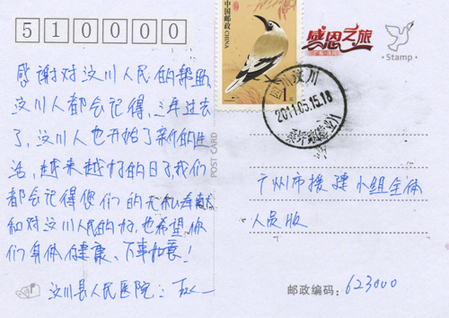 510000
感谢对汶川人民的帮助
汶川人都会记得,三年过去
了,汶川人也开始了新的生
活,越来越好的日子我们
都会记得您们的无私奉献
和对汶川人民的好,也希望你
们身体健康、万事如意!
汶川县人民医院:
中国邮政
CHINA
感恩之旅
Stamp
四川汶川
2011.05.15.18
POST CARD
广州市援建小组全体
人员收
邮政编码:623000